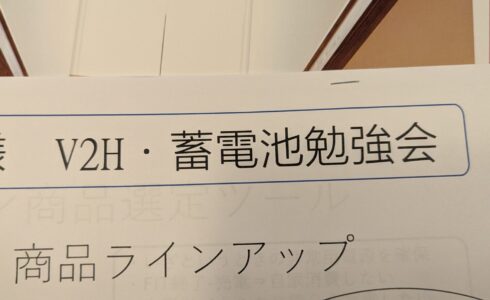 様 V2H・蓄電池勉強会
商品選定ツール
商品ラインアップ